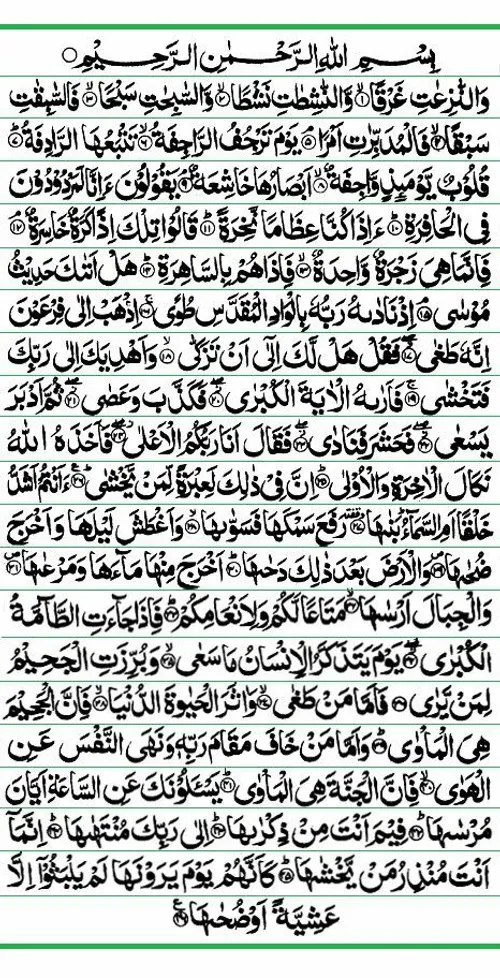 بِسْمِ اللهِ الرَّحْمٰنِ الرَّحِيْمِ ○
وَالنّٰزِعٰتِ غَرْقًا ۙ﴿۱﴾ وَّالنّٰشِطٰتِ نَشْطًا ۙ﴿۲﴾ وَّالسّٰبِحٰتِ سَبْحًا ۙ﴿۳﴾ فَالسّٰبِقٰتِ
سَبْقًا ۙ﴿۴﴾ فَالْمُدَبِّرٰتِ اَمْرًا ۘ﴿۵﴾ يَوْمَ تَرْجُفُ الرَّاجِفَةُ ۙ﴿۶﴾ تَتْبَعُهَا الرَّادِفَةُ ؕ﴿۷﴾
قُلُوْبٌ يَّوْمَىِٕذٍ وَّاجِفَةٌ ۙ﴿۸﴾ اَبْصَارُهَا خَاشِعَةٌ ۘ﴿۹﴾ يَقُوْلُوْنَ ءَاِنَّا لَمَرْدُوْدُوْنَ
فِى الْحَافِرَةِ ؕ﴿۱۰﴾ ءَاِذَا كُنَّا عِظَامًا نَّخِرَةً ؕ﴿۱۱﴾ قَالُوْا تِلْكَ اِذًا كَرَّةٌ خَاسِرَةٌ ۘ﴿۱۲﴾
فَاِنَّمَا هِىَ زَجْرَةٌ وَّاحِدَةٌ ۙ﴿۱۳﴾ فَاِذَا هُمْ بِالسَّاهِرَةِ ؕ﴿۱۴﴾ هَلْ اَتٰىكَ حَدِيْثُ
مُوْسٰى ۘ﴿۱۵﴾ اِذْ نَادٰىهُ رَبُّهٗ بِالْوَادِ الْمُقَدَّسِ طُوًى ۚ﴿۱۶﴾ اِذْهَبْ اِلٰى فِرْعَوْنَ
اِنَّهٗ طَغٰى ۖ﴿۱۷﴾ فَقُلْ هَلْ لَّكَ اِلٰٓى اَنْ تَزَكّٰى ۙ﴿۱۸﴾ وَاَهْدِيَكَ اِلٰى رَبِّكَ
فَتَخْشٰى ۚ﴿۱۹﴾ فَاَرٰىهُ الْاٰيَةَ الْكُبْرٰى ۖ﴿۲۰﴾ فَكَذَّبَ وَعَصٰى ۖ﴿۲۱﴾ ثُمَّ اَدْبَرَ
يَسْعٰى ۖ﴿۲۲﴾ فَحَشَرَ فَنَادٰى ۖ﴿۲۳﴾ فَقَالَ اَنَا رَبُّكُمُ الْاَعْلٰى ۖ﴿۲۴﴾ فَاَخَذَهُ اللهُ
نَكَالَ الْاٰخِرَةِ وَالْاُوْلٰى ؕ﴿۲۵﴾ اِنَّ فِىْ ذٰلِكَ لَعِبْرَةً لِّمَنْ يَّخْشٰى ؕ﴿۲۶﴾ ءَاَنْتُمْ اَشَدُّ
خَلْقًا اَمِ السَّمَآءُ ؕ بَنٰىهَا ﴿۲۷﴾ رَفَعَ سَمْكَهَا فَسَوّٰىهَا ۙ﴿۲۸﴾ وَاَغْطَشَ لَيْلَهَا وَاَخْرَجَ
ضُحٰىهَا ۪﴿۲۹﴾ وَالْاَرْضَ بَعْدَ ذٰلِكَ دَحٰىهَا ؕ﴿۳۰﴾ اَخْرَجَ مِنْهَا مَآءَهَا وَمَرْعٰىهَا ۪﴿۳۱﴾
وَالْجِبَالَ اَرْسٰىهَا ۙ﴿۳۲﴾ مَتَاعًا لَّكُمْ وَلِاَنْعَامِكُمْ ؕ﴿۳۳﴾ فَاِذَا جَآءَتِ الطَّآمَّةُ
الْكُبْرٰى ۖ﴿۳۴﴾ يَوْمَ يَتَذَكَّرُ الْاِنْسَانُ مَا سَعٰى ۙ﴿۳۵﴾ وَبُرِّزَتِ الْجَحِيْمُ
لِمَنْ يَّرٰى ﴿۳۶﴾ فَاَمَّا مَنْ طَغٰى ۙ﴿۳۷﴾ وَاٰثَرَ الْحَيٰوةَ الدُّنْيَا ۙ﴿۳۸﴾ فَاِنَّ الْجَحِيْمَ
هِىَ الْمَاْوٰى ؕ﴿۳۹﴾ وَاَمَّا مَنْ خَافَ مَقَامَ رَبِّهٖ وَنَهَى النَّفْسَ عَنِ
الْهَوٰى ۙ﴿۴۰﴾ فَاِنَّ الْجَنَّةَ هِىَ الْمَاْوٰى ؕ﴿۴۱﴾ يَسْـَٔلُوْنَكَ عَنِ السَّاعَةِ اَيَّانَ
مُرْسٰىهَا ؕ﴿۴۲﴾ فِيْمَ اَنْتَ مِنْ ذِكْرٰىهَا ؕ﴿۴۳﴾ اِلٰى رَبِّكَ مُنْتَهٰىهَا ؕ﴿۴۴﴾ اِنَّمَآ
اَنْتَ مُنْذِرُ مَنْ يَّخْشٰىهَا ؕ﴿۴۵﴾ كَاَنَّهُمْ يَوْمَ يَرَوْنَهَا لَمْ يَلْبَثُوْٓا اِلَّا
عَشِيَّةً اَوْ ضُحٰىهَا ﴿۴۶﴾